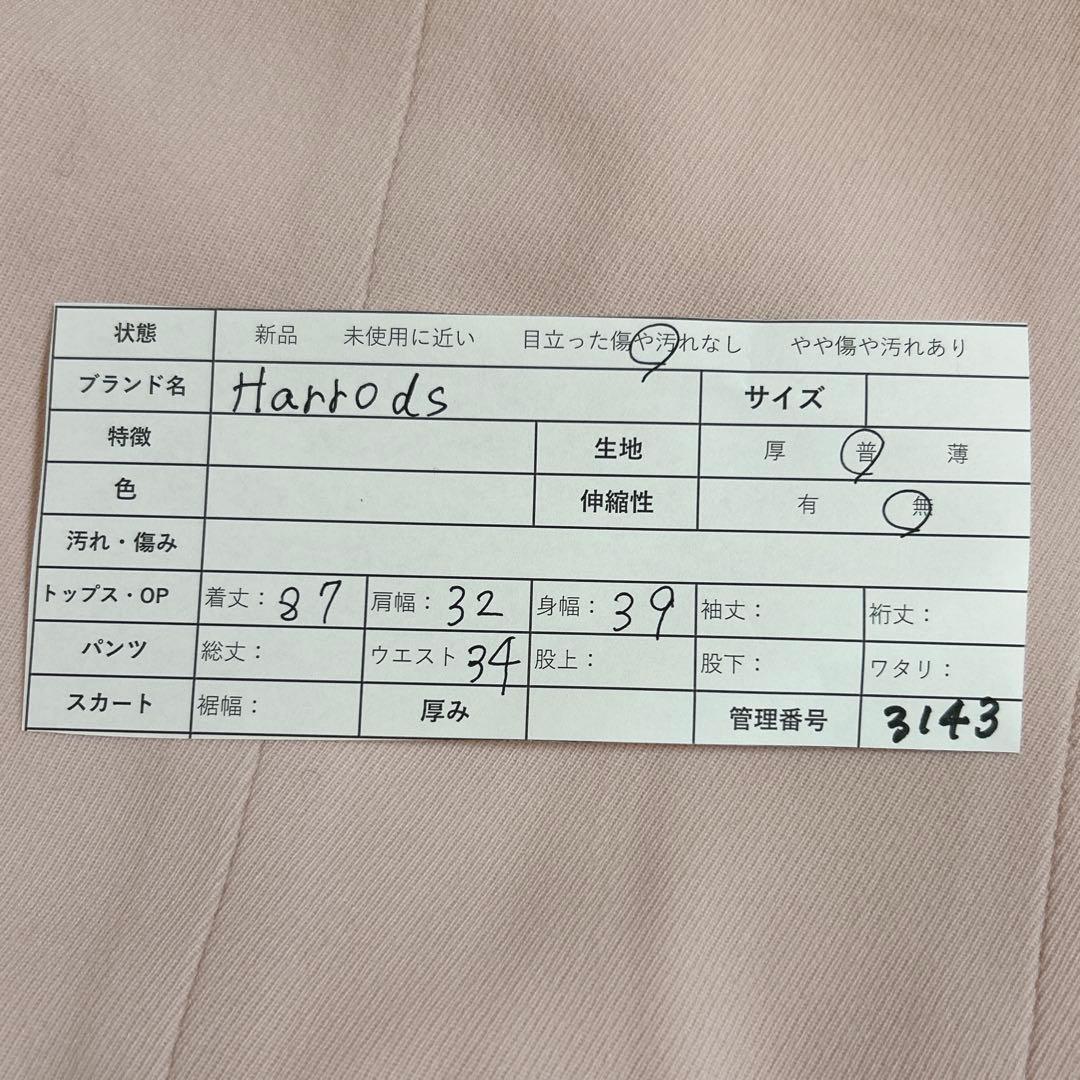 状態 新品 未使用に近い 目立った傷や汚れなし やや傷や汚れあり
ブランド名 Harrods サイズ
特徴 生地 厚 普 薄
色 伸縮性 有 無
汚れ・傷み
トップス・OP 着丈：87 肩幅：32 身幅：39 袖丈： 裄丈：
パンツ 総丈： ウエスト 34 股上： 股下： ワタリ：
スカート 裾幅： 厚み 管理番号 3143